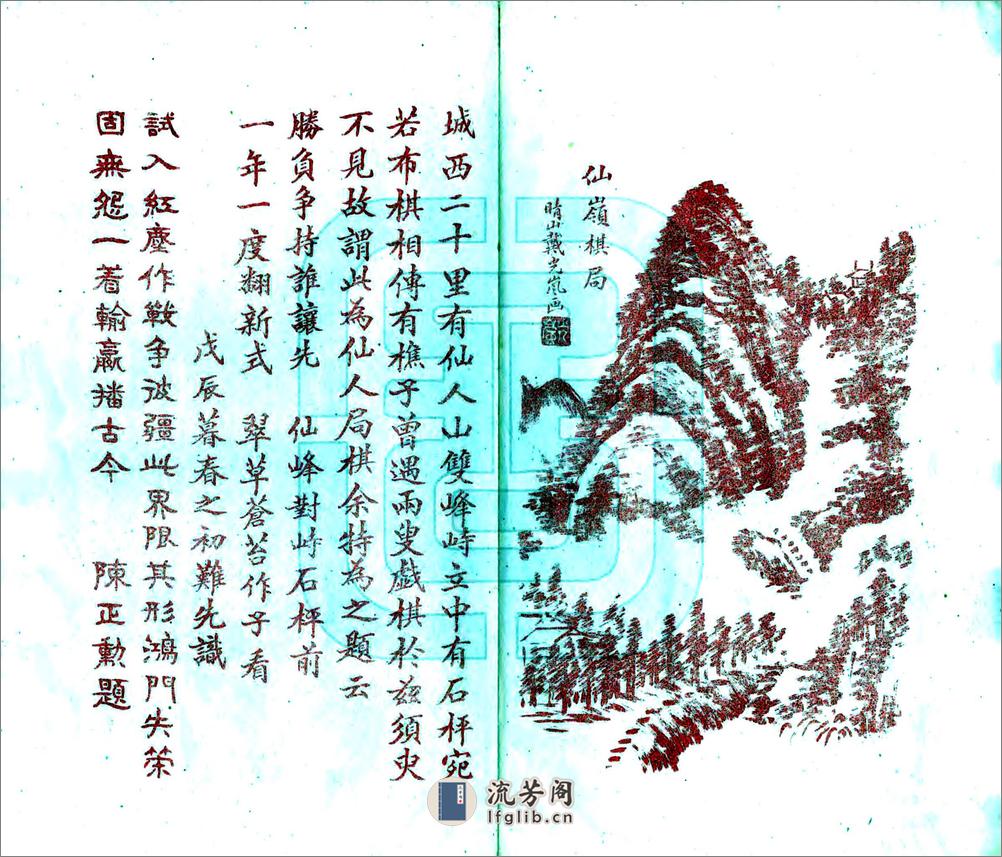 仙嶺棋局
晴山戴光嵐画
城西二十里有仙人山雙峰峙立中有石枰宛
若布棋相傳有樵子曾遇兩叟戲棋於茲須臾
不見故謂此為仙人局棋余特為之題云
勝負争持誰讓先　仙峰對峙石枰前
一年一度翻新式　翠草蒼苔作子看
戊辰暮春之初難先識
試入紅塵作戰争彼疆此界限其形鴻門失策
固無怨一着輸贏播古今　陳正勳題
流芳阁
lfglib.cn